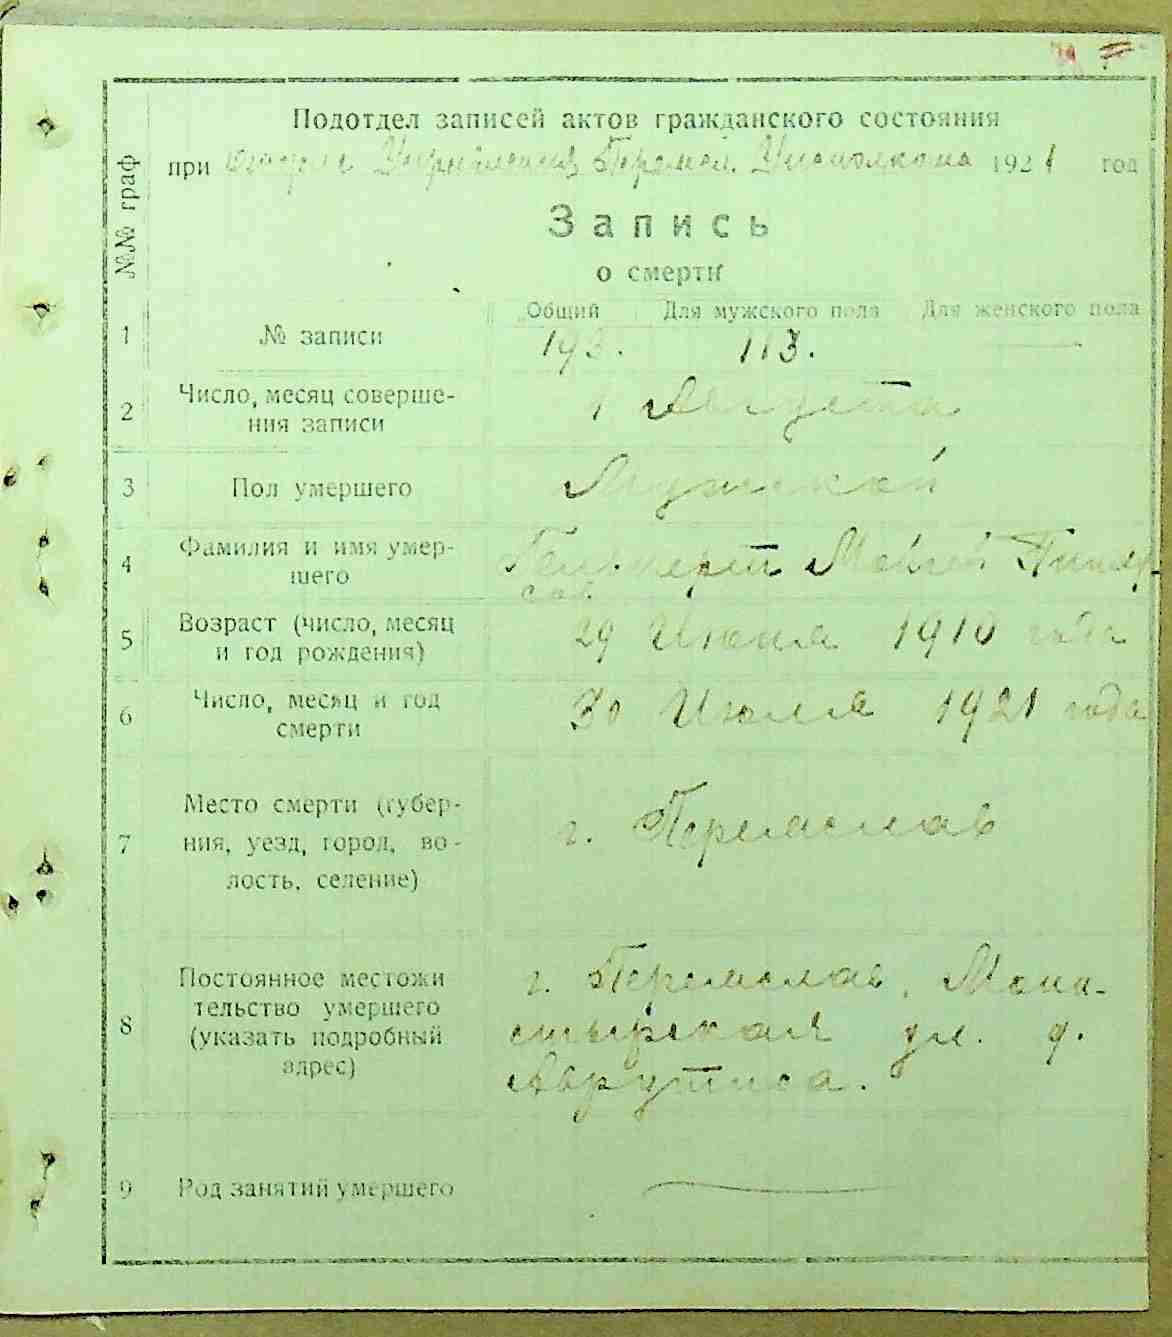 Подотдел записей актов гражданского состояния
при Управления Перемсл. Исполкома 1921 год
№№ граф
Запись
о смерти
Общий Для мужского пола Для женского пола
1 № записи 193. 113. —
2 Число, месяц соверше-
ния записи 1 Августа
3 Пол умершего Мужской
4 Фамилия и имя умер-
шего
5 Возраст (число, месяц
и год рождения) 29 Июня 1910 года
6 Число, месяц и год
смерти 30 Июля 1921 года
7 Место смерти (губер-
ния, уезд, город, во-
лость, селение) г. Переяслав
8 Постоянное местожи
тельство умершего
(указать подробный
адрес) г. Переяслав, Мона-
стырская ул. д.
Аврутиса.
9 Род занятий умершего —